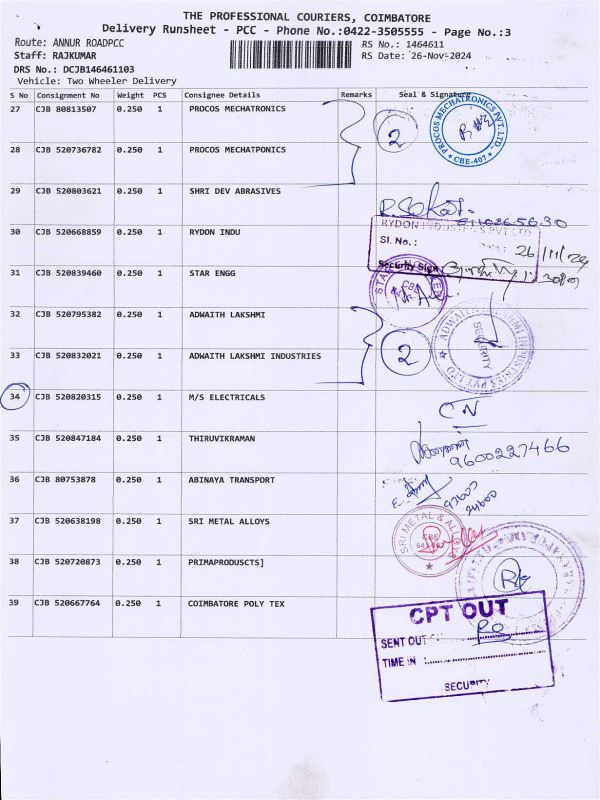 THE PROFESSIONAL COURIERS, COIMBATORE
Delivery Runsheet - PCC - Phone No.:0422-3505555 - Page No.:3
Route: ANNUR ROADPCC RS No.: 1464611
Staff: RAJKUMAR RS Date: 26-Nov-2024
DRS No.: DCJB146461103
Vehicle: Two Wheeler Delivery
S No Consignment No Weight PCS Consignee Details Remarks Seal & Signature
27 CJB 80813507 0.250 1 PROCOS MECHATRONICS
PROCOS MECHATRONICS PVT. LTD. CBE-407
2
28 CJB 520736782 0.250 1 PROCOS MECHATPONICS
29 CJB 520803621 0.250 1 SHRI DEV ABRASIVES
30 CJB 520668859 0.250 1 RYDON INDU
RYDON INDUSTRIES PVT LTD
Sl. No.:
26/11/24
Security Sign
31 CJB 520839460 0.250 1 STAR ENGG
32 CJB 520795382 0.250 1 ADWAITH LAKSHMI
SECURITY
33 CJB 520832021 0.250 1 ADWAITH LAKSHMI INDUSTRIES
2
34 CJB 520820315 0.250 1 M/S ELECTRICALS
CN
35 CJB 520847184 0.250 1 THIRUVIKRAMAN
9600227466
36 CJB 80753878 0.250 1 ABINAYA TRANSPORT
37 CJB 520638198 0.250 1 SRI METAL ALLOYS
SRI METAL & ALLOYS
CBE
38 CJB 520720873 0.250 1 PRIMAPRODUSCTS]
39 CJB 520667764 0.250 1 COIMBATORE POLY TEX
CPT OUT
SENT OUT
TIME IN :
SECURITY